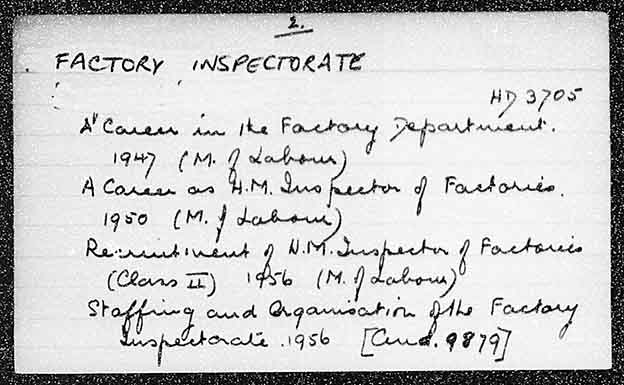 2.
FACTORY INSPECTORATE
HD 3705
A Career in the Factory Department.
1947 (M. of Labour)
A Career as H.M. Inspector of Factories.
1950 (M. of Labour)
Recruitment of H.M. Inspector of Factories
(Class II) 1956 (M. of Labour)
Staffing and Organisation of the Factory
Inspectorate. 1956 [Cmd. 9879]